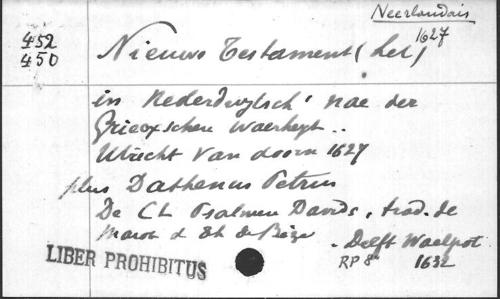 Neerlandais
1627
452
450
Nieuws Testament (het)
in Nederduytsch' nae der
Grieexschen waerheyt..
Utrecht Van doorn 1627
plus Dathenus Petrus
De CL Psalmen Davids, trad. de
Marot d Th de Bèze
- Delft Waelpot
RP 8° 1632
LIBER PROHIBITUS